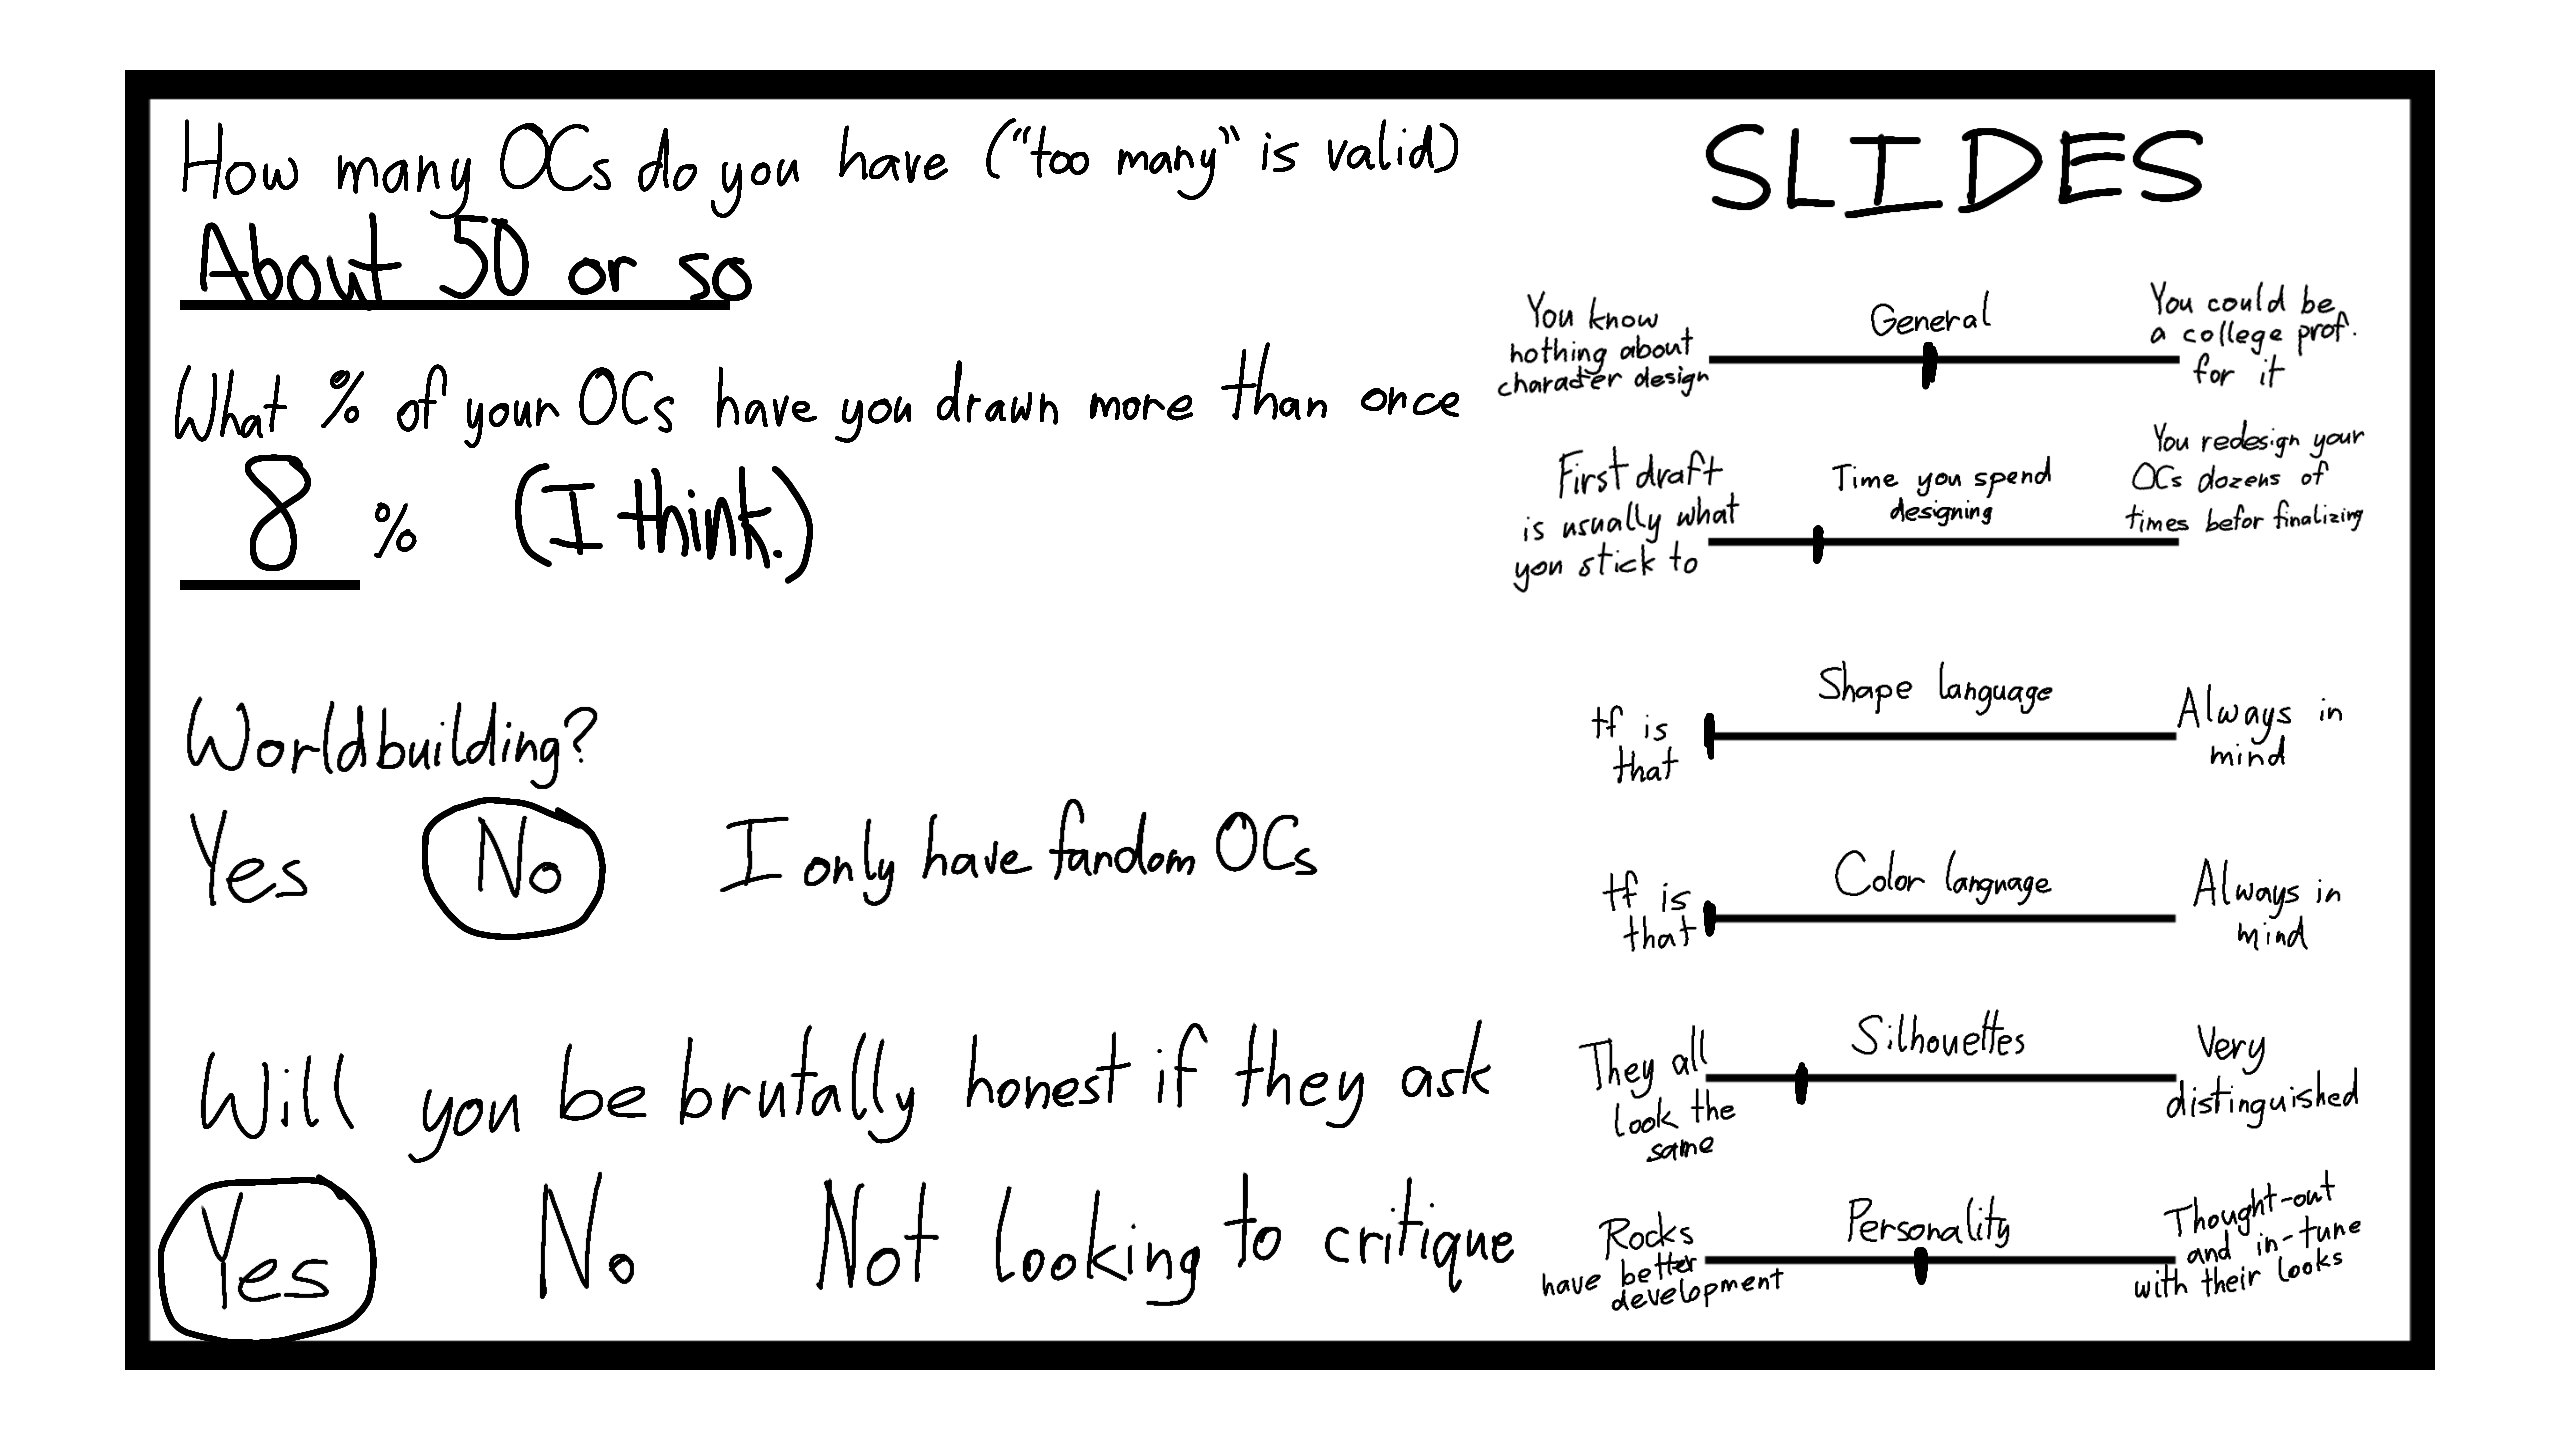 How many OCs do you have ("too many" is valid)
About 50 or so
What % of your OCs have you drawn more than once
8 % (I think.)
Worldbuilding?
Yes No I only have fandom OCs
Will you be brutally honest if they ask
Yes No Not looking to critique
SLIDES
General
You know
nothing about
character design
You could be
a college prof.
for it
Time you spend
designing
First draft
is usually what
you stick to
You redesign your
OCs dozens of
times befor finalizing
Shape language
tf is
that
Always in
mind
Color language
tf is
that
Always in
mind
Silhouettes
They all
look the
same
Very
distinguished
Personality
Rocks
have better
development
Thought-out
and in-tune
with their looks